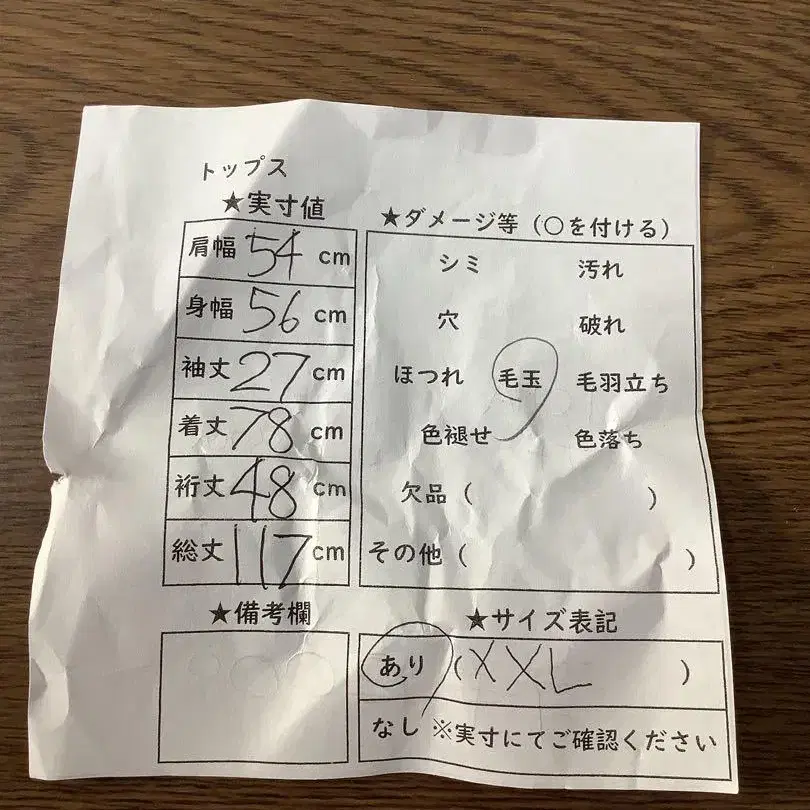 トップス
★実寸値
肩幅 54 cm
身幅 56 cm
袖丈 27 cm
着丈 78 cm
裄丈 48 cm
総丈 117 cm
★ダメージ等（○を付ける）
シミ 汚れ
穴 破れ
ほつれ 毛玉 毛羽立ち
色褪せ 色落ち
欠品（ ）
その他（ ）
★備考欄
★サイズ表記
あり（XXL ）
なし ※実寸にてご確認ください